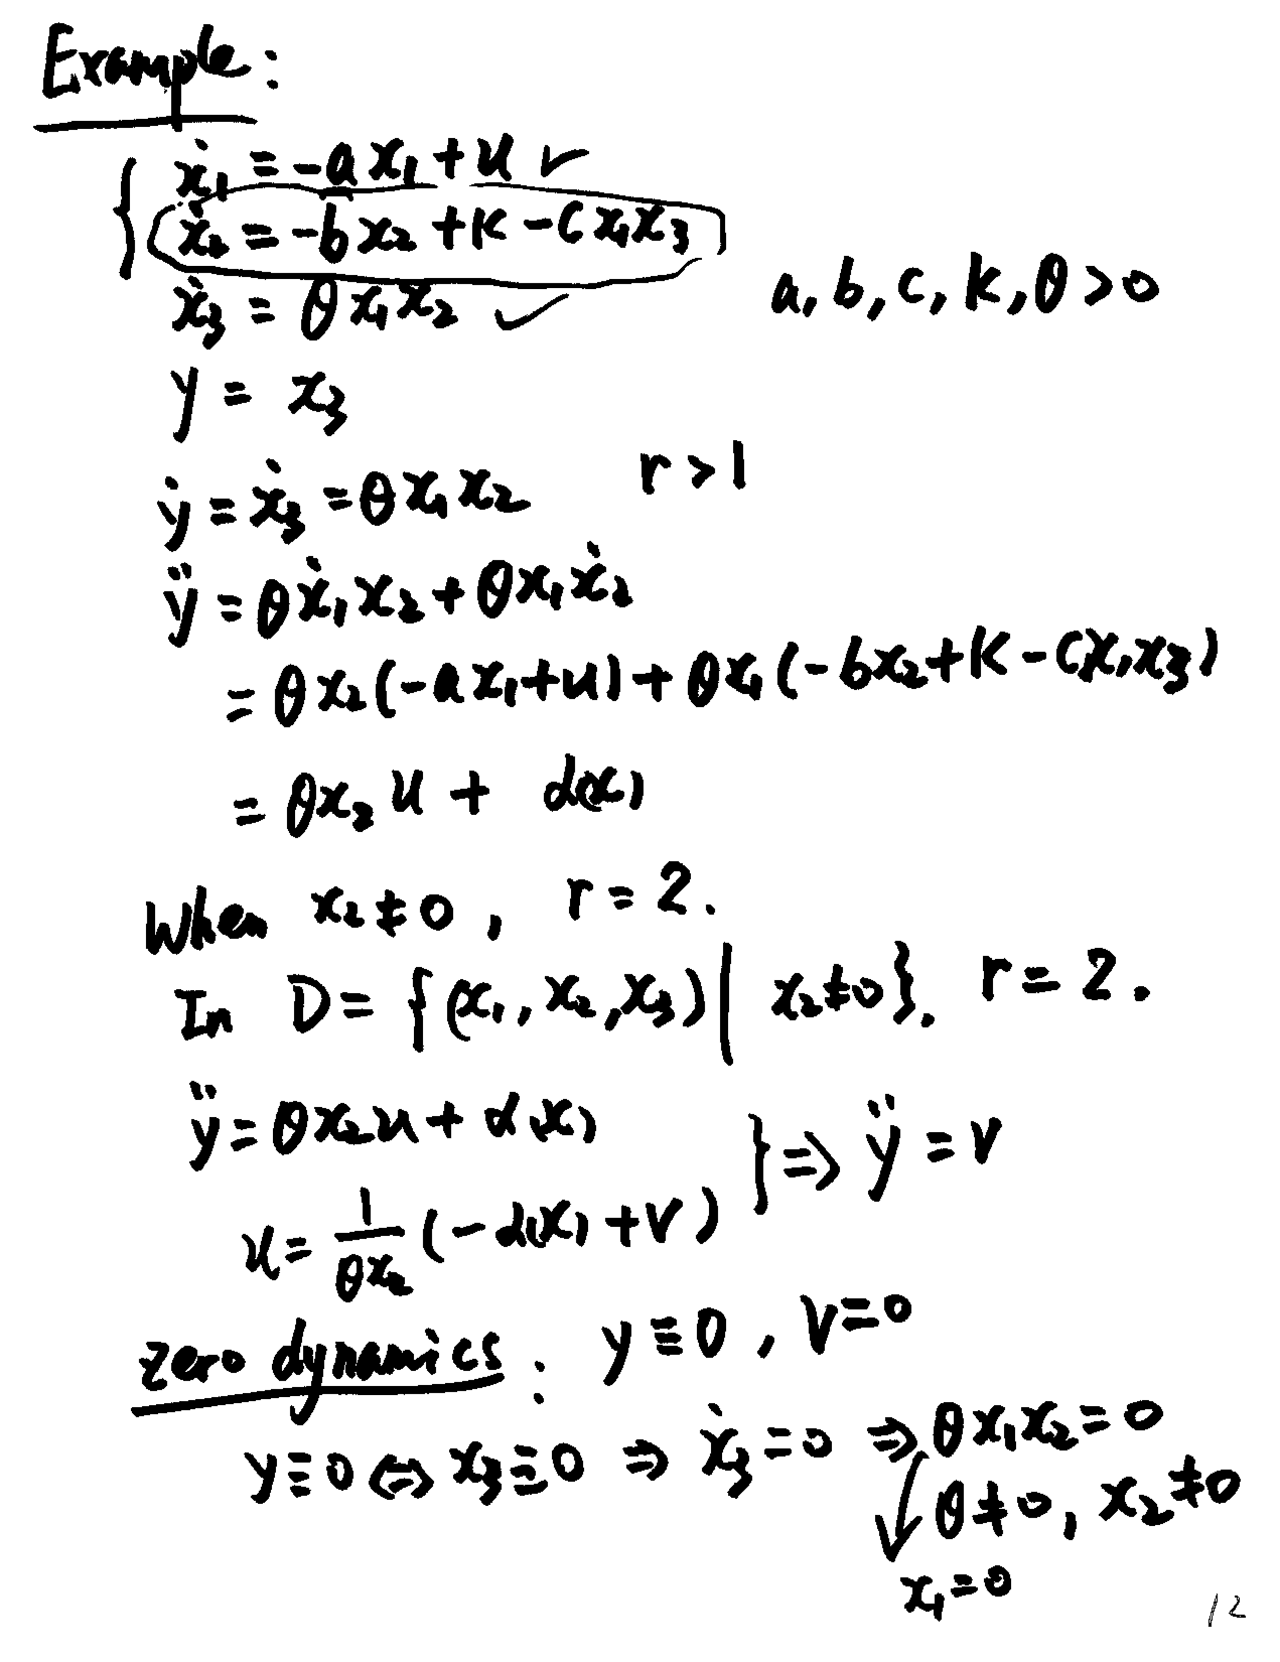 Example:
ẋ₁ = -a x₁ + u ✓
ẋ₂ = -b x₂ + k - c x₁ x₃
ẋ₃ = θ x₁ x₂ ✓
a, b, c, k, θ > 0
y = x₃
ẏ = ẋ₃ = θ x₁ x₂ r > 1
ÿ = θ ẋ₁ x₂ + θ x₁ ẋ₂
= θ x₂ (-a x₁ + u) + θ x₁ (-b x₂ + k - c x₁ x₃)
= θ x₂ u + α(x)
When x₂ ≠ 0, r = 2.
In D = {(x₁, x₂, x₃) | x₂ ≠ 0}. r = 2.
ÿ = θ x₂ u + α(x)
u = 1/(θ x₂) (-α(x) + v)
} ⇒ ÿ = v
zero dynamics: y ≡ 0, v = 0
y ≡ 0 ⇔ x₃ ≡ 0 ⇒ ẋ₃ = 0 ⇒ θ x₁ x₂ = 0
θ ≠ 0, x₂ ≠ 0
x₁ = 0
12